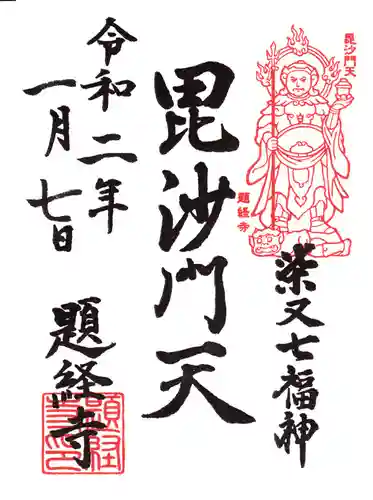 毘沙門天
題経寺
柴又七福神
毘沙門天
令和二年
一月七日
題経寺
題経寺之印